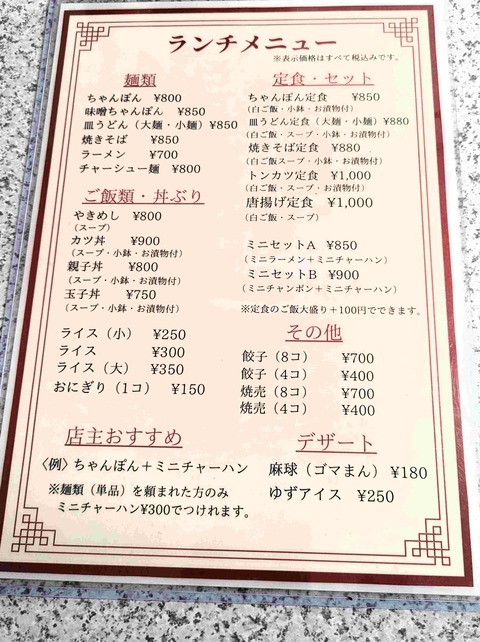 ランチメニュー
※表示価格はすべて税込みです。
麺類
ちゃんぽん ¥800
味噌ちゃんぽん ¥850
皿うどん（大麺・小麺）¥850
焼きそば ¥850
ラーメン ¥700
チャーシュー麺 ¥800
ご飯類・丼ぶり
やきめし ¥800
（スープ）
カツ丼 ¥900
（スープ・小鉢・お漬物付）
親子丼 ¥800
（スープ・小鉢・お漬物付）
玉子丼 ¥750
（スープ・小鉢・お漬物付）
ライス（小） ¥250
ライス ¥300
ライス（大） ¥350
おにぎり（1コ） ¥150
店主おすすめ
〈例〉ちゃんぽん＋ミニチャーハン
※麺類（単品）を頼まれた方のみ
ミニチャーハン¥300でつけれます。
定食・セット
ちゃんぽん定食 ¥850
（白ご飯・小鉢・お漬物付）
皿うどん定食（大麺・小麺）¥880
（白ご飯・スープ・小鉢・お漬物付）
焼きそば定食 ¥880
（白ご飯スープ・小鉢・お漬物付）
トンカツ定食 ¥1,000
（白ご飯・スープ・お漬物付）
唐揚げ定食 ¥1,000
（白ご飯・スープ）
ミニセットA ¥850
（ミニラーメン＋ミニチャーハン）
ミニセットB ¥900
（ミニチャンポン＋ミニチャーハン）
※定食のご飯大盛り＋100円でできます。
その他
餃子（8コ） ¥700
餃子（4コ） ¥400
焼売（8コ） ¥700
焼売（4コ） ¥400
デザート
麻球（ゴマまん）¥180
ゆずアイス ¥250